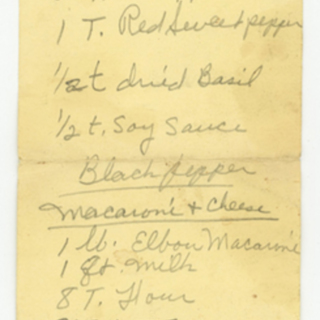 1 T. Red Sweet pepper
1/2 t dried Basil
1/2 t. Soy Sauce
Black pepper
Macaroni & Cheese
1 lb. Elbow Macaroni
1 qt. Milk
8 T. Flour